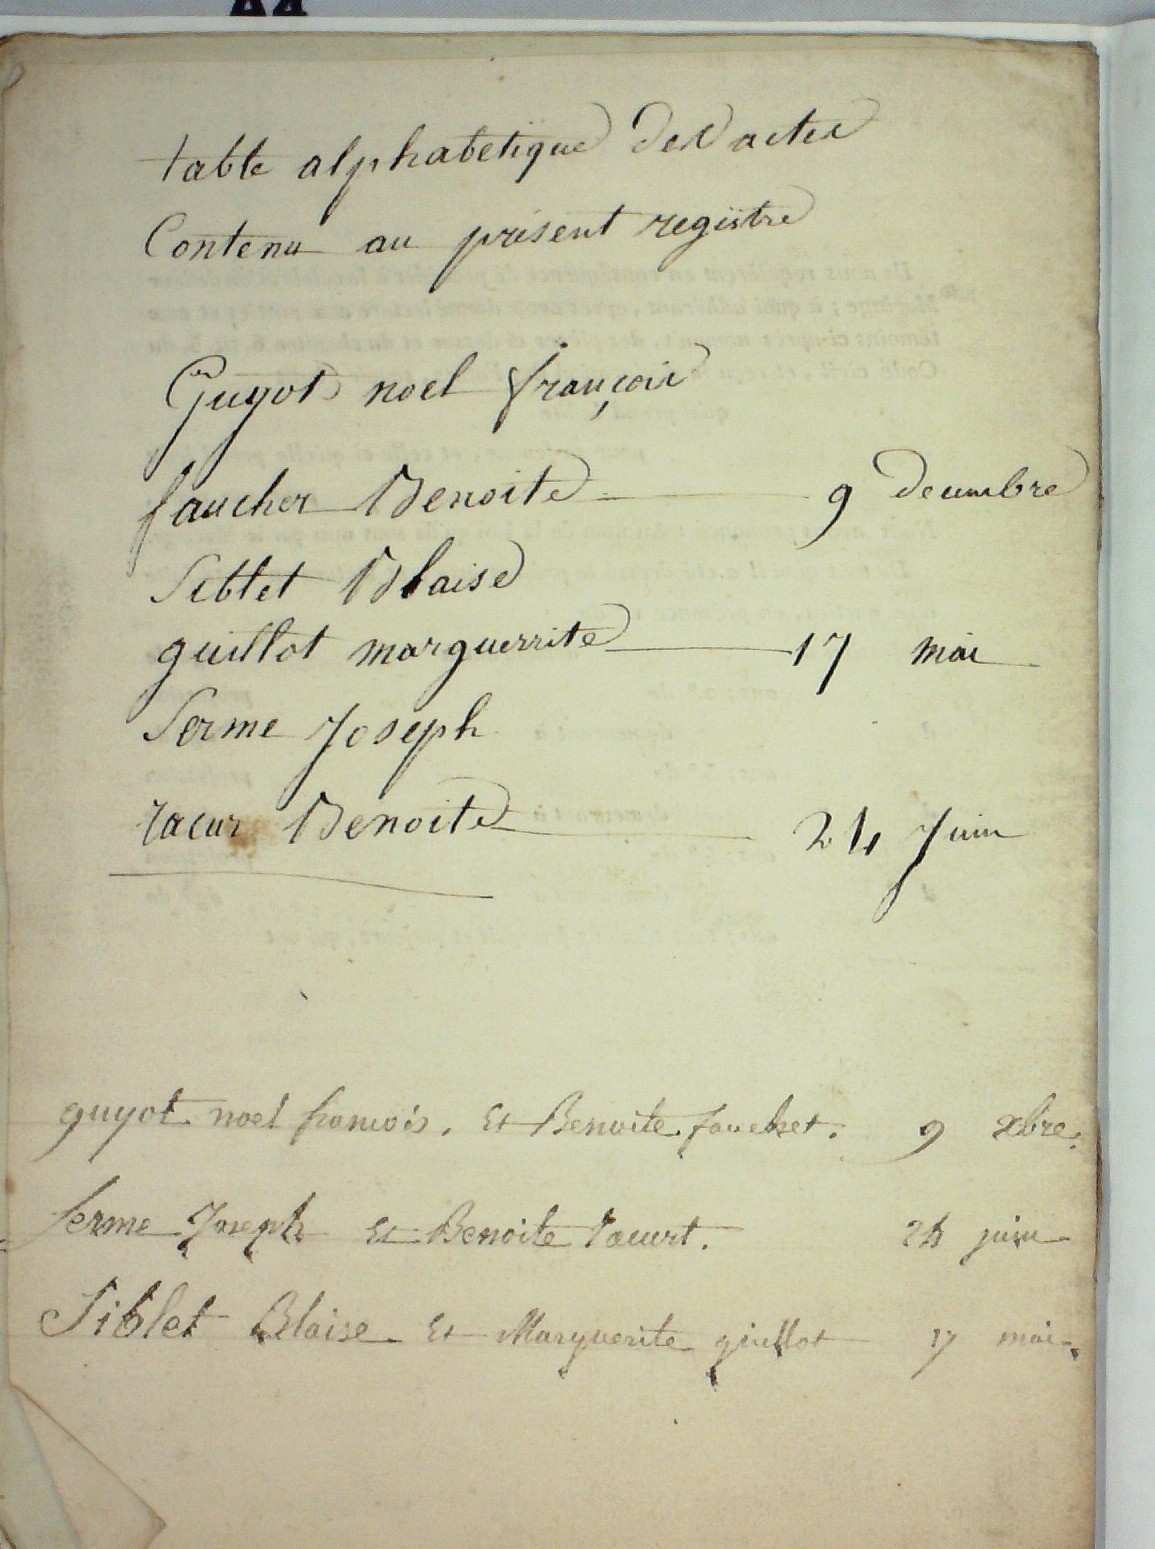 table alphabetique des actes
Contenu au présent registre
Guyot noel françois
faucher Benoite 9 decembre
Siblet Blaise
guillot marguerrite 17 mai
Serme Joseph
Benoite 24 Juin
guyot noel francois. Et Benoite faucher. 9 xbre.
Serme Joseph Et Benoite 24 juin
Siblet Blaise Et Marguerite guillot 17 mai